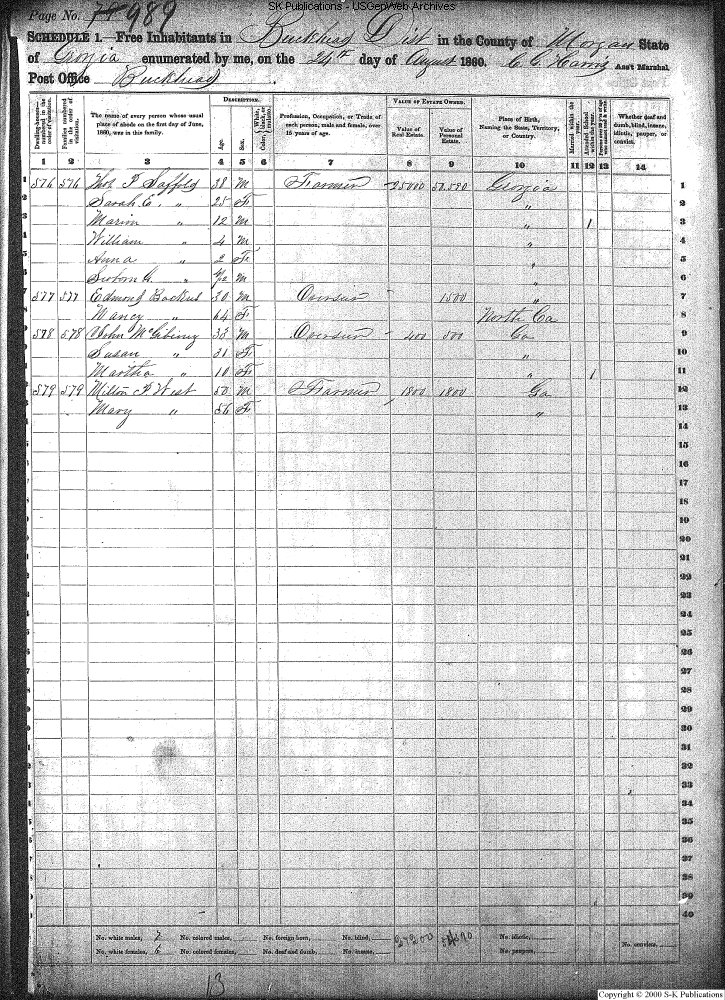 SK Publications - USGenWeb Archives
Page No. 74 989
SCHEDULE 1.—Free Inhabitants in Buckhead Dist in the County of Morgan State
of Georgia enumerated by me, on the 24th day of August 1860. C. C. Harris Ass't Marshal.
Post Office Buckhead
Dwelling-houses—numbered in the order of visitation.
Families numbered in the order of visitation.
The name of every person whose usual place of abode on the first day of June, 1860, was in this family.
DESCRIPTION.
Age.
Sex.
Color, White, black, or mulatto.
Profession, Occupation, or Trade of each person, male and female, over 15 years of age.
VALUE OF ESTATE OWNED.
Value of Real Estate.
Value of Personal Estate.
Place of Birth, Naming the State, Territory, or Country.
Married within the year.
Attended School within the year.
Whether deaf and dumb, blind, insane, idiotic, pauper, or convict.
1 2 3 4 5 6 7 8 9 10 11 12 13 14
1 576 576 Thos P Saffold 38 M Farmer 25000 Georgia 1
2 Sarah E. " 25 F " 2
3 Marion " 12 M " 1 3
4 William " 4 M " 4
5 Anna " 2 F " 5
6 " M " 6
7 577 577 Edmond Backus 30 M Overseer 1500 " 7
8 Nancy " 64 F North Ca 8
9 578 578 John McGibiny 33 M Overseer 400 500 Ga 9
10 Susan " 31 F " 10
11 Martha " 10 F " 1 11
12 579 579 Milton P. West 50 M Farmer 1800 1800 Ga 12
13 Mary " 56 F " 13
14
15
16
17
18
19
20
21
22
23
24
25
26
27
28
29
30
31
32
33
34
35
36
37
38
39
40
No. white males, 7 No. colored males, No. foreign born, No. blind, 27200 No. idiotic,
No. white females, 6 No. colored females, No. deaf and dumb, No. insane, No. paupers, No. convicts,
13
Copyright © 2000 S-K Publications